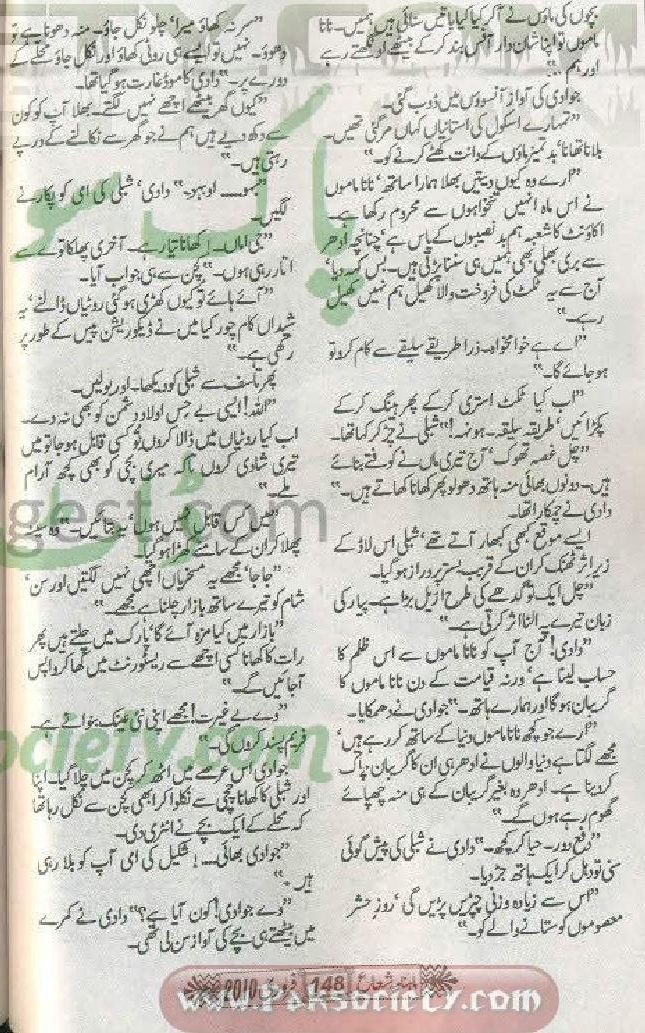 بچوں کی ماؤں نے آکر کیا کیا باتیں سنائی ہیں ہمیں۔ نانا
ماموں تو اپنا شان دار آفس بند کرکے بیٹھے اونگھتے رہے
اور ہم ...“
جوادی کی آواز آنسوؤں میں ڈوب گئی۔
”تمہارے اسکول کی استانیاں کہاں مر گئی تھیں۔
بلانا تھا نا‘ بدتمیز ماؤں کے دانت کھٹے کرنے کو۔“
”ارے وہ کیوں دیتیں بھلا ہمارا ساتھ‘ نانا ماموں
نے اس ماہ انہیں تنخواہوں سے محروم رکھا ہے۔
اکاؤنٹ کا شعبہ ہم بدنصیبوں کے پاس ہے‘ چنانچہ ادھر
سے بری بھلی بھی ہمیں ہی سننا پڑتی ہیں۔ بس کہہ دیا‘
آج سے یہ ٹکٹ کی فروخت والا کھیل ہم نہیں کھیل
رہے۔“
”اے ہے خوامخواہ۔ ذرا طریقے سلیقے سے کام کرو تو
ہو جائے گا۔“
”اب کیا ٹکٹ استری کرکے پھر ہنگ کرکے
پکڑائیں‘ طریقہ سلیقہ۔ ہونہہ!“ شبلی نے چڑ کر کہا تھا۔
”چل غصہ تھوک‘ آج تیری ماں نے کوفتے بنائے
ہیں۔ دونوں بھائی منہ ہاتھ دھو لو پھر کھانا کھاتے ہیں۔“
دادی نے چمکارا تھا۔
ایسے موقع کبھی کبھار آتے تھے‘ شبلی اس لاڈ کے
زیر اثر ٹھنک کر ان کے قریب بستر پر دراز ہو گیا۔
”چل ایک تو گدھے کی طرح اڑیل بڑا ہے۔ پیار کی
زبان تیرے۔ الٹا اثر کرتی ہے۔“
”دادی! آج آپ کو نانا ماموں سے اس ظلم کا
حساب لینا ہے‘ ورنہ قیامت کے دن نانا ماموں کا
گریبان ہو گا اور ہمارے ہاتھ۔“ جوادی نے دھمکایا۔
”ارے جو کچھ نانا ماموں دنیا کے ساتھ کر رہے ہیں‘
مجھے لگتا ہے دنیا والوں نے ادھر ہی ان کا گریبان چاک
کر دینا ہے۔ ادھر وہ بغیر گریبان کے ہی منہ چھپائے
گھوم رہے ہوں گے۔“
”دفع دور۔ حیا کر کچھ۔“ دادی نے شبلی کی پیش گوئی
سنی تو دہل کر ایک ہاتھ جڑ دیا۔
”اس سے زیادہ وزنی چپیڑیں پڑیں گی‘ روز حشر
معصوموں کو ستانے والے کو۔“
”سر نہ کھاؤ میرا‘ چلو نکل جاؤ۔ منہ دھونا ہے تو
دھوؤ۔ نہیں تو ایسے ہی روٹی کھاؤ اور نکل جاؤ محلے کے
دورے پر۔“ دادی کا موڈ غارت ہو گیا تھا۔
”کیوں گھر بیٹھے اچھے نہیں لگتے۔ بھلا آپ کو کون
سے دکھ دیے ہیں ہم نے جو گھر سے نکالنے کے درپے
رہتی ہیں۔“
”... اوہو۔“ دادی‘ شبلی کی امی کو پکارنے
لگیں۔
”جی اماں۔! کھانا تیار ہے۔ آخری پھلکا توے سے
اتار رہی ہوں۔“ کچن سے ہی جواب آیا۔
”آئے ہائے تو کیوں کھڑی ہو گئی روٹیاں ڈالنے‘ یہ
شیداں کام چور کیا میں نے ڈیکوریشن پیس کے طور پر
رکھی ہے۔“
پھر تاسف سے شبلی کو دیکھا۔ اور بولیں۔
”اللہ! ایسی بے حس اولاد دشمن کو بھی نہ دے۔
اب کیا روٹیاں میں ڈالا کروں‘ تو کسی قابل ہو جا تو میں
تیری شادی کروں تاکہ میری بچی کو بھی کچھ آرام
ملے۔“
”میں کس قابل نہیں ہوں‘ یہ بتائیں۔“ وہ سینہ
پھلا کر ان کے سامنے کھڑا ہو گیا۔
”جا جا‘ مجھے یہ مسخریاں اچھی نہیں لگتیں اور سن‘
شام کو تیرے ساتھ بازار چلنا ہے مجھے۔“
”بازار میں کیا مزہ آئے گا‘ پارک میں چلتے ہیں پھر
رات کا کھانا کسی اچھے سے ریسٹورنٹ میں کھا کر واپس
آ جائیں گے۔“
”وے بے غیرت! مجھے اپنی نئی عینک بنوانی ہے۔
فریم پسند کروں گی۔“
جوادی اس عرصے میں اٹھ کر کچن میں چلا گیا۔ اپنا
اور شبلی کا کھانا چچی سے نکلوا کر ابھی کچن سے نکل رہا تھا
کہ محلے کے ایک بچے نے انٹری دی۔
”جوادی بھائی...! شکیل کی امی آپ کو بلا رہی
ہیں۔“
”وے جوادی! کون آیا ہے؟“ دادی نے کمرے
میں بیٹھتے ہی بچے کی آواز سن لی تھی۔
ماہنامہ شعاع 148 فروری 2010
www.Paksociety.com